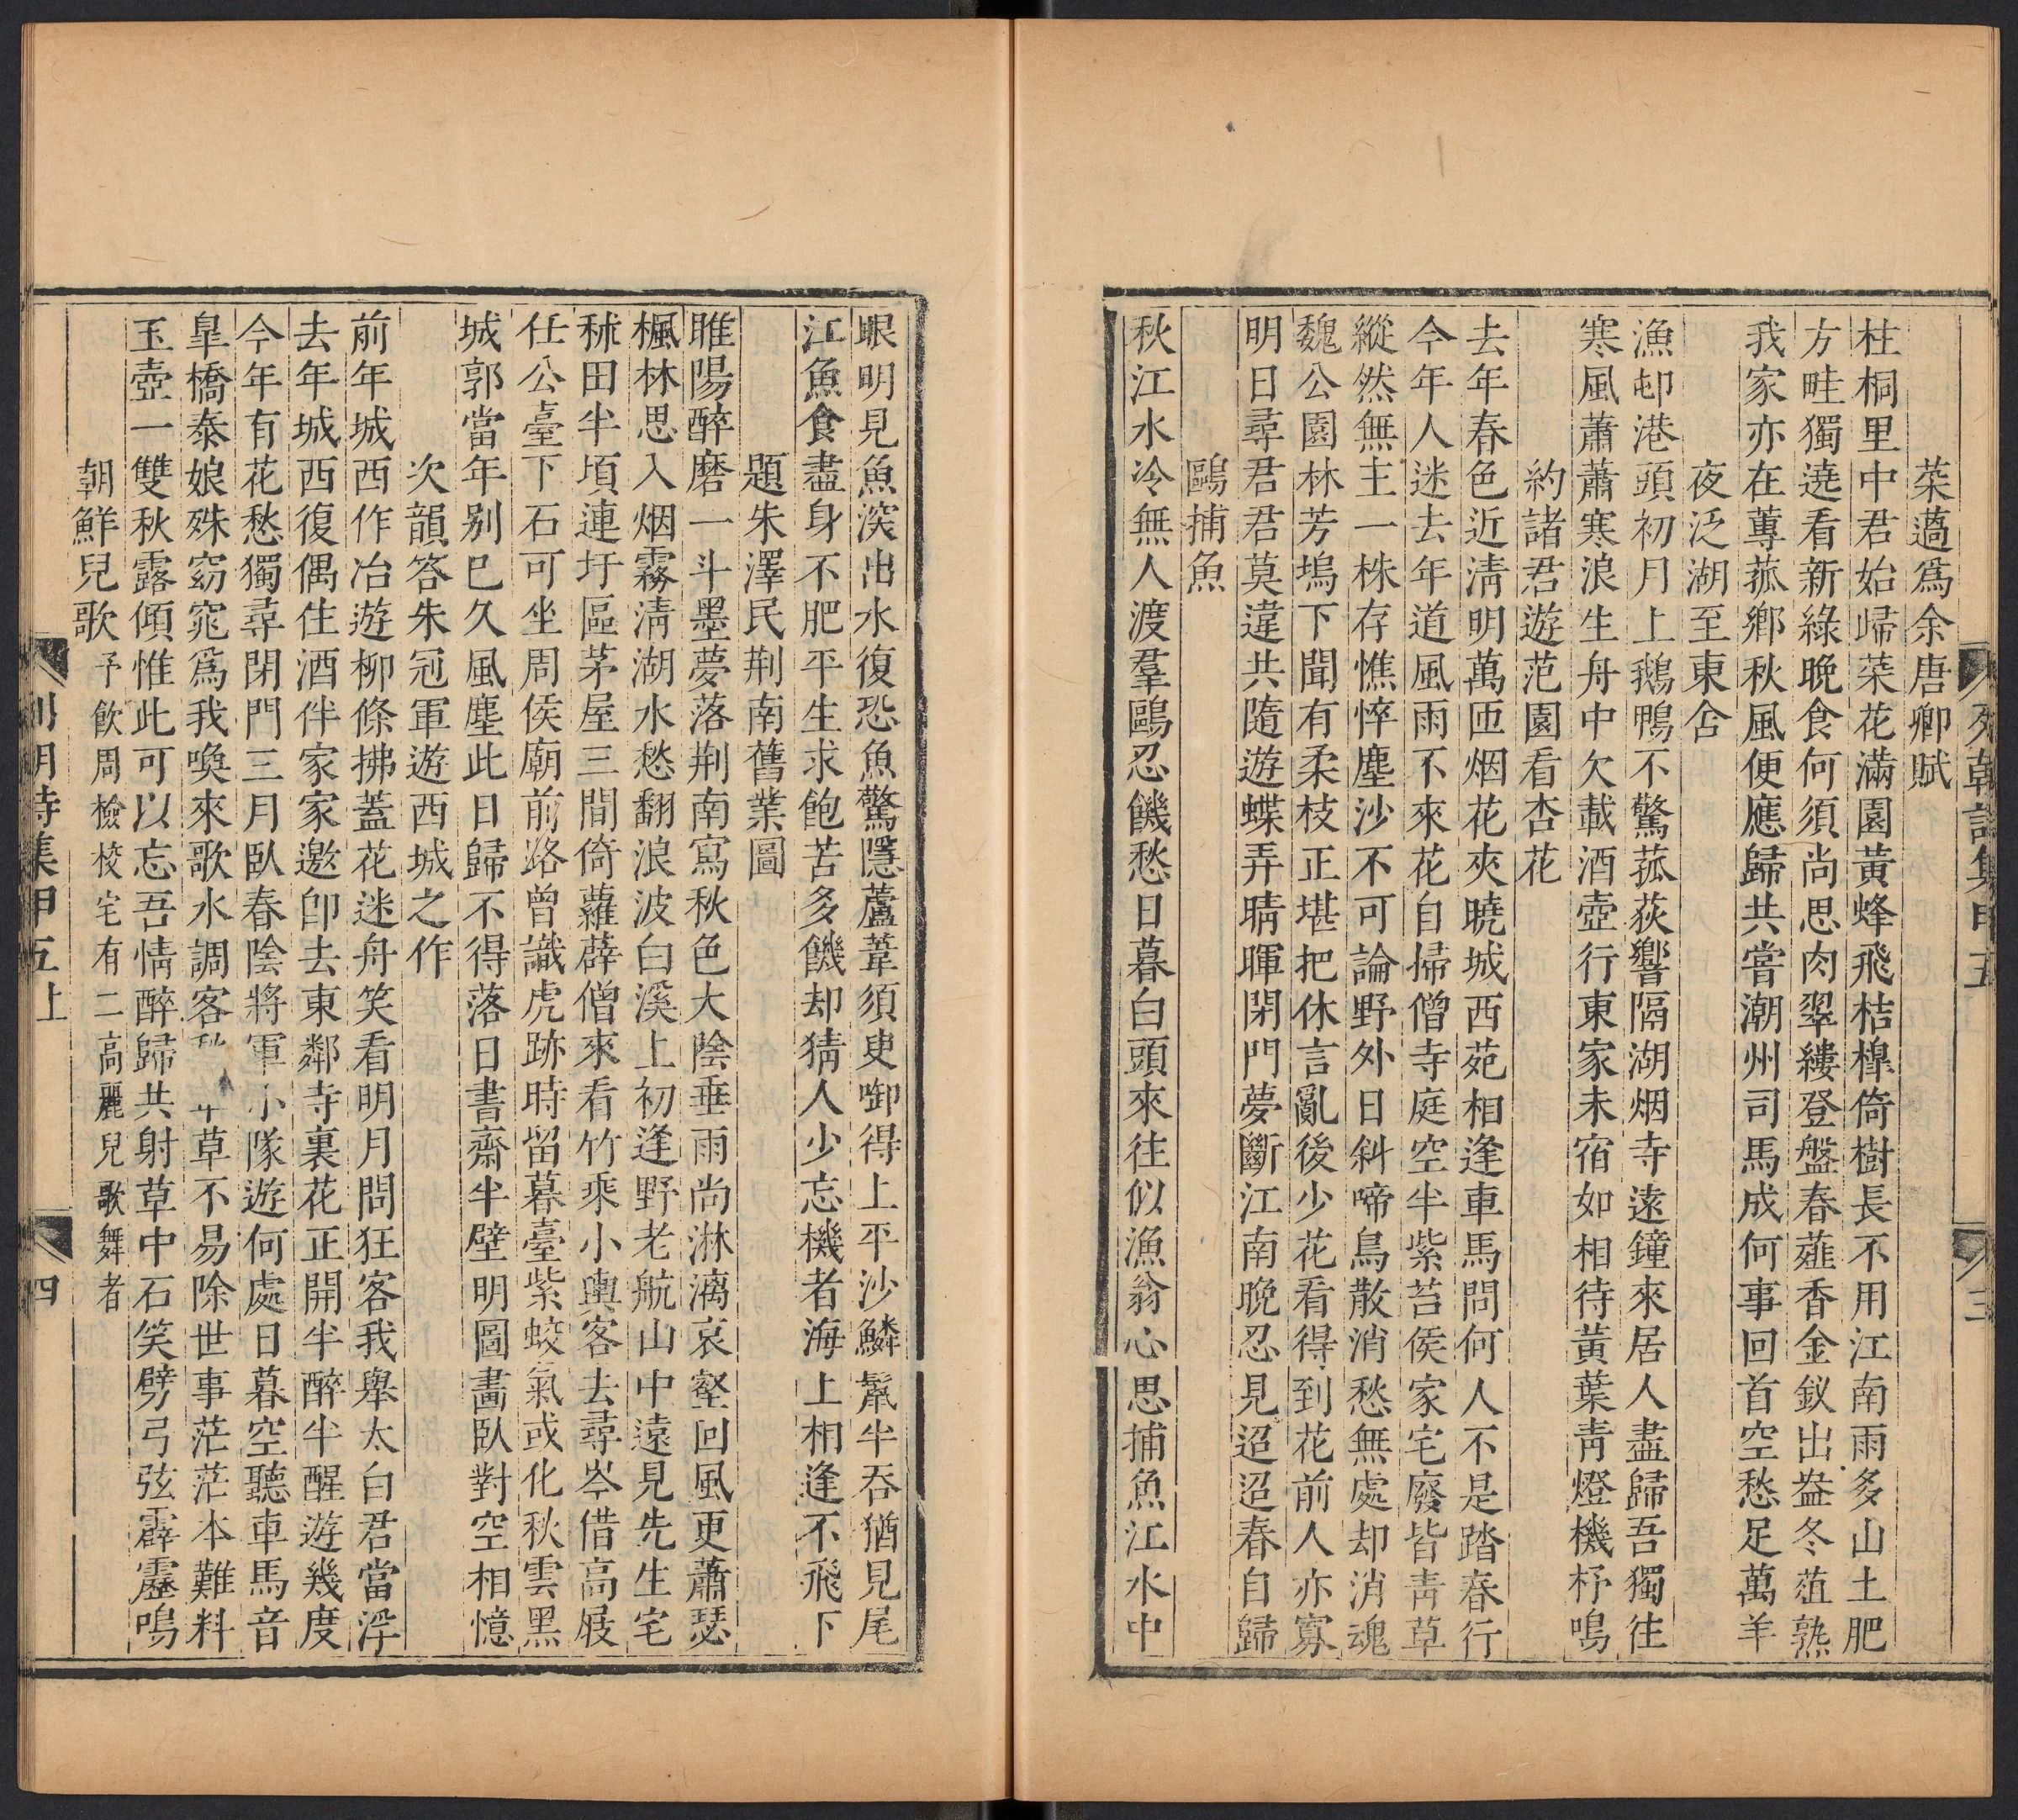 列朝詩集甲五
三
菜薖爲余唐卿賦
桂桐里中君始歸菜花滿園黃蜂飛桔槹倚樹長不用江南雨多山土肥
方畦獨遶看新綠晚食何須尚思肉翠縷登盤春薤香金釵出盎冬葅熟
我家亦在蓴菰鄕秋風便應歸共嘗潮州司馬成何事回首空愁足萬羊
夜泛湖至東舍
漁邨港頭初月上鵝鴨不驚菰荻響隔湖烟寺遠鐘來居人盡歸吾獨往
寒風蕭蕭寒浪生舟中欠載酒壺行東家未宿如相待黃葉靑燈機杼鳴
約諸君遊范園看杏花
去年春色近淸明萬匝烟花夾曉城西苑相逢車馬問何人不是踏春行
今年人迷去年道風雨不來花自掃僧寺庭空半紫苔侯家宅廢皆靑草
縱然無主一株存憔悴塵沙不可論野外日斜啼鳥散消愁無處却消魂
魏公園林芳塢下聞有柔枝正堪把休言亂後少花看得到花前人亦寡
明日尋君君莫違共隨遊蝶弄晴暉閉門夢斷江南晚忍見迢迢春自歸
鷗捕魚
秋江水冷無人渡羣鷗忍饑愁日暮白頭來往似漁翁心思捕魚江水中
眼明見魚深出水復恐魚驚隱蘆葦須臾啣得上平沙鱗鬣半吞猶見尾
江魚食盡身不肥平生求飽苦多饑却猜人少忘機者海上相逢不飛下
題朱澤民荆南舊業圖
睢陽醉磨一斗墨夢落荆南寫秋色大陰垂雨尚淋漓哀壑回風更蕭瑟
楓林思入烟霧淸湖水愁翻浪波白溪上初逢野老航山中遠見先生宅
秫田半頃連圩區茅屋三間倚蘿薜僧來看竹乘小輿客去尋岑借高屐
任公臺下石可坐周侯廟前路曾識虎跡時留暮臺紫蛟氣或化秋雲黑
城郭當年別已久風塵此日歸不得落日書齋半壁明圖畫臥對空相憶
次韻答朱冠軍遊西城之作
前年城西作冶遊柳條拂蓋花迷舟笑看明月問狂客我舉太白君當浮
去年城西復偶住酒伴家家邀卽去東鄰寺裏花正開半醉半醒遊幾度
今年有花愁獨尋閉門三月臥春陰將軍小隊遊何處日暮空聽車馬音
皐橋泰娘殊窈窕爲我喚來歌水調客草不易除世事茫茫本難料
玉壺一雙秋露傾惟此可以忘吾情醉歸共射草中石笑劈弓弦霹靂鳴
朝鮮兒歌予飲周檢校宅有二高麗兒歌舞者
列朝詩集甲五上
四